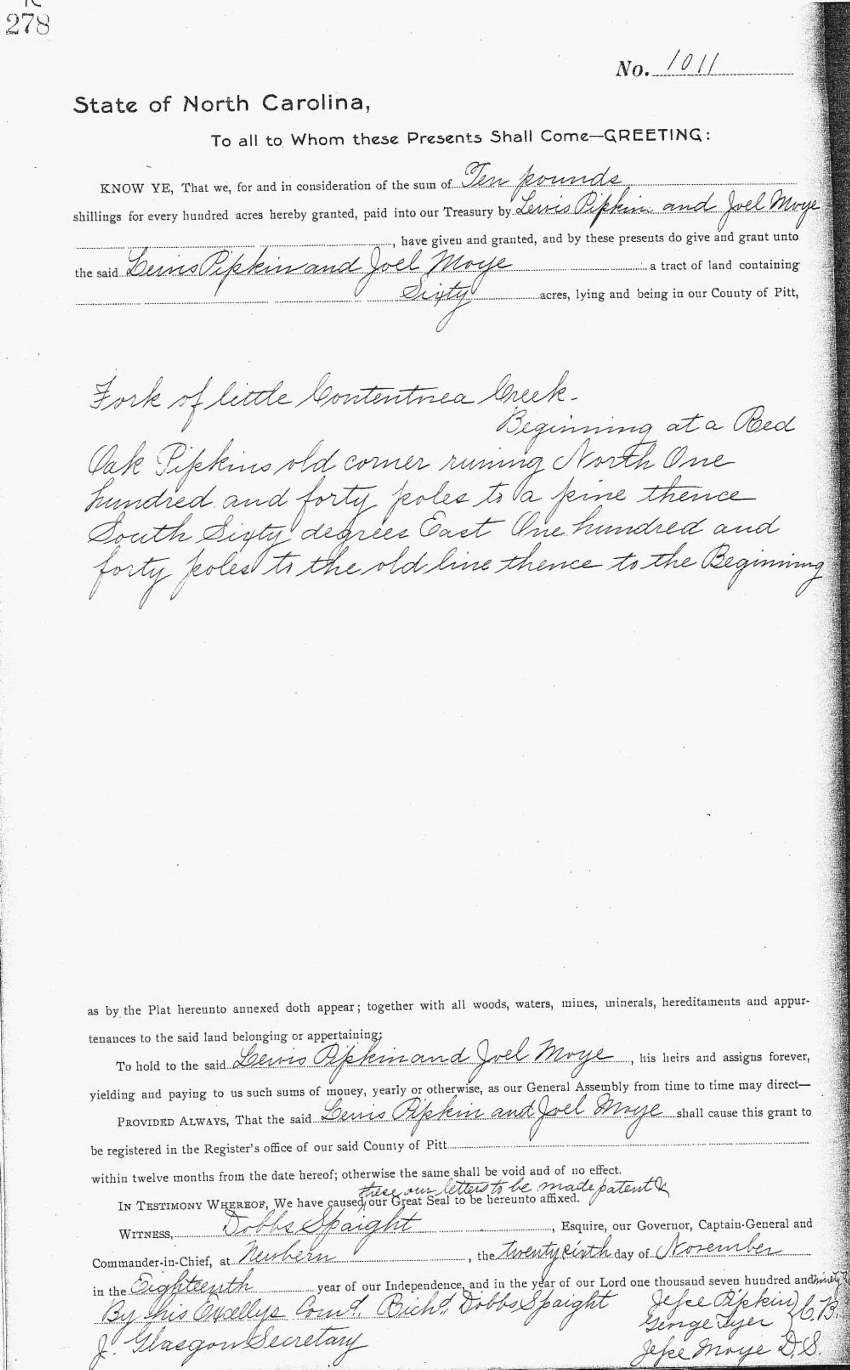 278
No. 1011
State of North Carolina,
To all to Whom these Presents Shall Come—GREETING:
KNOW YE, That we, for and in consideration of the sum of Ten pounds
shillings for every hundred acres hereby granted, paid into our Treasury by Lewis Pipkin and Joel Moye
, have given and granted, and by these presents do give and grant unto
the said Lewis Pipkin and Joel Moye a tract of land containing
Sixty acres, lying and being in our County of Pitt,
Fork of little Contentnea Creek-
Beginning at a Red
Oak Pipkins old corner runing North One
hundred and forty poles to a pine thence
South Sixty degrees East One hundred and
forty poles to the old line thence to the Beginning
as by the Plat hereunto annexed doth appear; together with all woods, waters, mines, minerals, hereditaments and appur-
tenances to the said land belonging or appertaining;
To hold to the said Lewis Pipkin and Joel Moye, his heirs and assigns forever,
yielding and paying to us such sums of money, yearly or otherwise, as our General Assembly from time to time may direct—
PROVIDED ALWAYS, That the said Lewis Pipkin and Joel Moye shall cause this grant to
be registered in the Register's office of our said County of Pitt
within twelve months from the date hereof; otherwise the same shall be void and of no effect.
these our letters to be made patent &
IN TESTIMONY WHEREOF, We have caused our Great Seal to be hereunto affixed.
WITNESS, Dobbs Spaight, Esquire, our Governor, Captain-General and
Commander-in-Chief, at Newbern, the twenty sixth day of November
in the Eighteenth year of our Independence, and in the year of our Lord one thousand seven hundred and ninety
By his Excellys Comd. Richd. Dobbs Spaight Jesse Pipkin } C.B.
J. Glasgow Secretary George Tyer
Jesse Moye D.S.